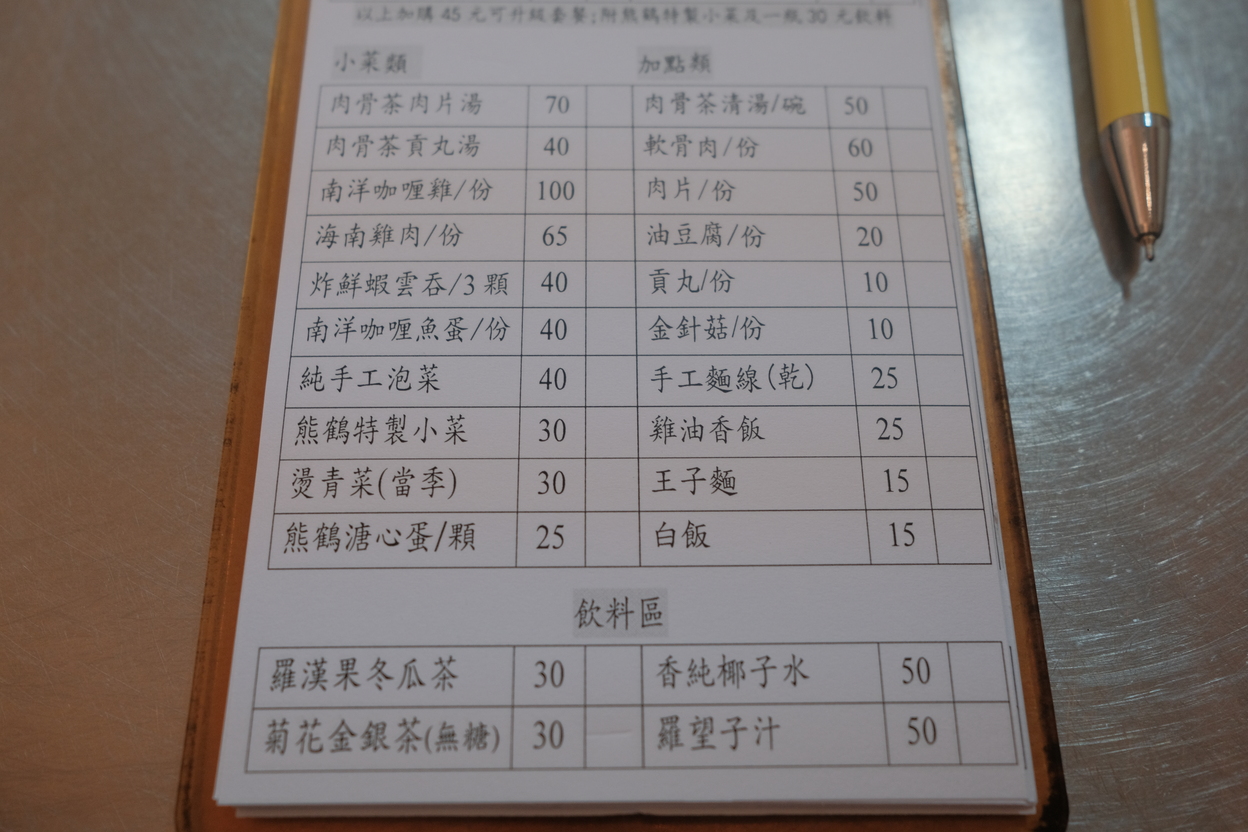 以上加購 45 元可升級套餐;附熊鶴特製小菜及一瓶 30 元飲料
小菜類 加點類
肉骨茶肉片湯 70 肉骨茶清湯/碗 50
肉骨茶貢丸湯 40 軟骨肉/份 60
南洋咖喱雞/份 100 肉片/份 50
海南雞肉/份 65 油豆腐/份 20
炸鮮蝦雲吞/3 顆 40 貢丸/份 10
南洋咖喱魚蛋/份 40 金針菇/份 10
純手工泡菜 40 手工麵線(乾) 25
熊鶴特製小菜 30 雞油香飯 25
燙青菜(當季) 30 王子麵 15
熊鶴溏心蛋/顆 25 白飯 15
飲料區
羅漢果冬瓜茶 30 香純椰子水 50
菊花金銀茶(無糖) 30 羅望子汁 50